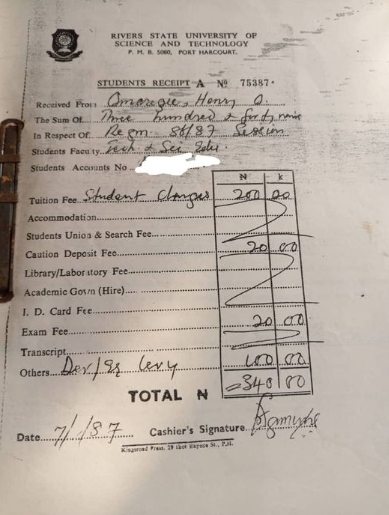 RIVERS STATE UNIVERSITY OF
SCIENCE AND TECHNOLOGY
P. M. B. 5080, PORT HARCOURT.
STUDENTS RECEIPT A № 75387
Received From Omoregie, Henry O.
The Sum Of Three hundred & forty naira
In Respect Of Regn. 86/87 Session
Students Faculty Tech & Sci Edu.
Students Accounts No
N k
Tuition Fee Student Charges 200 00
Accommodation
Students Union & Search Fee
Caution Deposit Fee 20 00
Library/Laboratory Fee
Academic Gown (Hire)
I. D. Card Fee 20 00
Exam Fee
Transcript
Others Dev/ levy 100 00
TOTAL N =340 00
Date 7/1/87 Cashier's Signature
Press, 29 P.H.